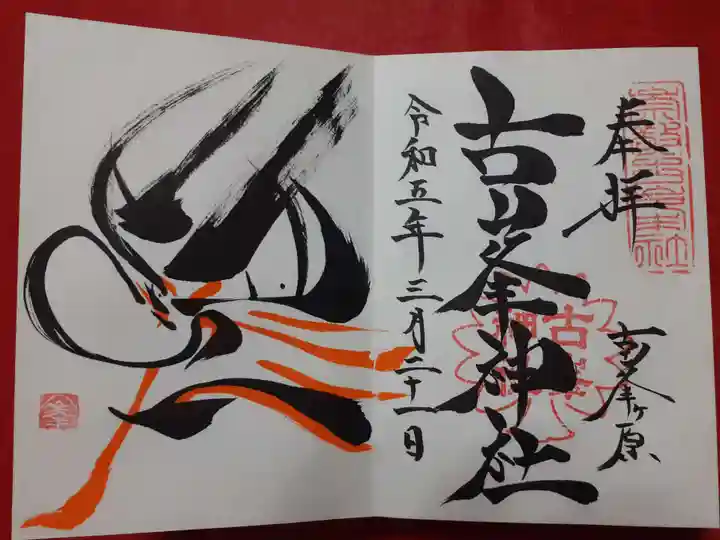 奉拝
古峯ヶ原
古峯神社
令和五年三月二十一日